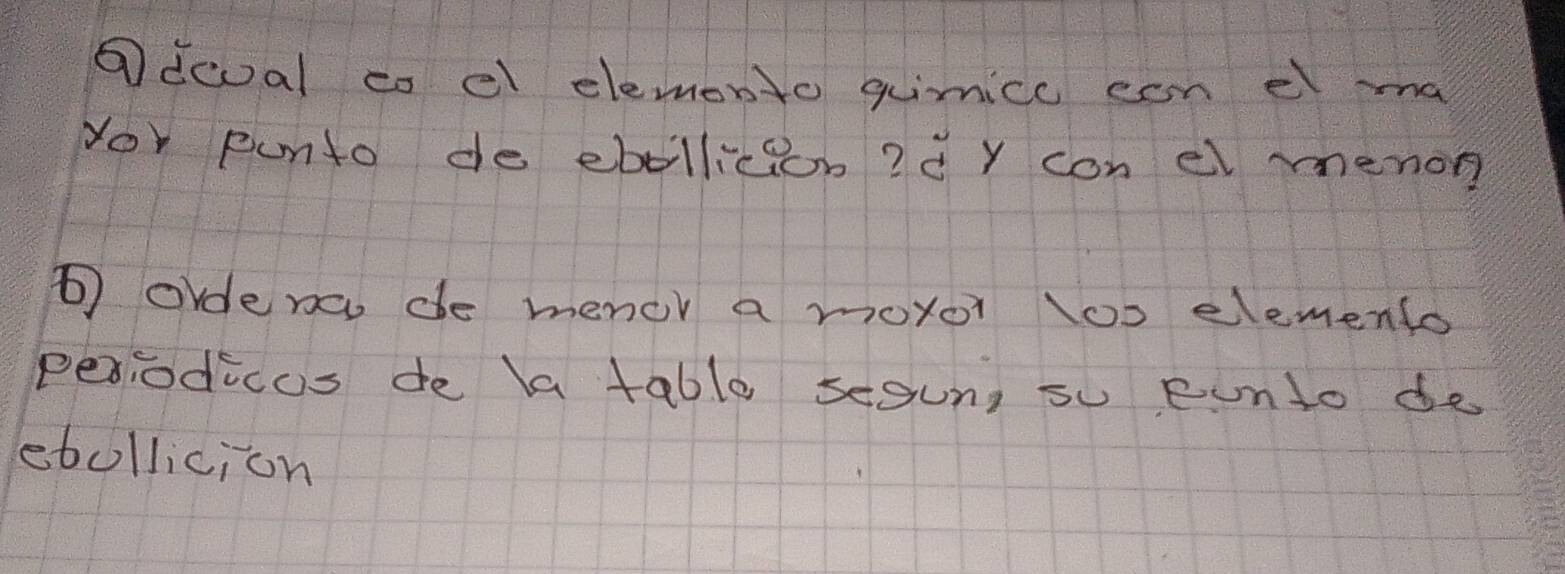 a) ¿cual es el elemento quimico con el ma
yor punto de ebullición? ¿Y con el menor
b) ordena de menor a mayor los elemento
periódicos de la tabla segun, su punto de
ebullicion